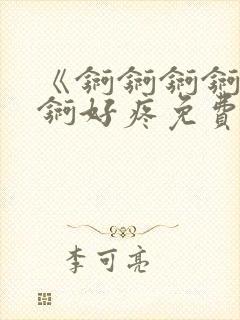 《锕锕锕锕
锕好疼免費
李可亮